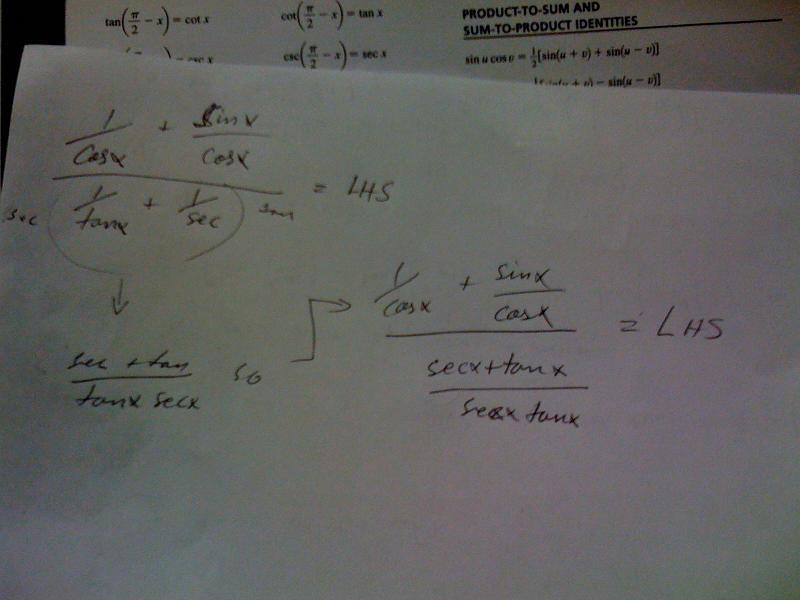 tan(π/2 − x) = cot x
cot(π/2 − x) = tan x
csc(π/2 − x) = sec x
PRODUCT-TO-SUM AND
SUM-TO-PRODUCT IDENTITIES
sin u cos v = 1/2[sin(u + v) + sin(u − v)]
− sin(u − v)]
1/cosx + sinx/cosx
sec 1/tanx + 1/sec tan = LHS
↓
sec + tan / tanx secx so →
1/cosx + sinx/cosx
secx + tanx / secx tanx = LHS